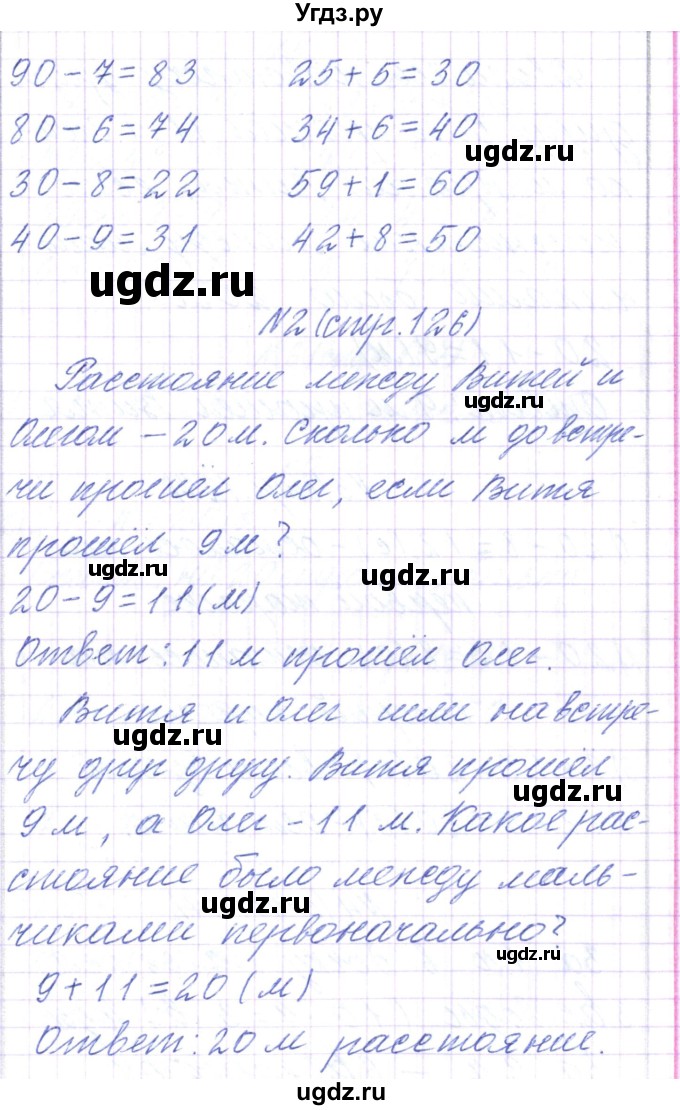 Угдз.ру
90 - 7 = 83 25 + 5 = 30
80 - 6 = 74 34 + 6 = 40
ugdz.ru
30 - 8 = 22 59 + 1 = 60
40 - 9 = 31 42 + 8 = 50
ugdz.ru
№2 (стр. 126)
Расстояние между Витей и
ugdz.ru
Олегом - 20 м. Сколько м до встре-
чи прошёл Олег, если Витя
прошёл 9 м?
ugdz.ru
ugdz.ru
20 - 9 = 11 (м)
Ответ: 11 м прошёл Олег.
Витя и Олег шли навстре-
ugdz.ru
чу друг другу. Витя прошёл
ugdz.ru
9 м, а Олег - 11 м. Какое рас-
стояние было между маль-
ugdz.ru
чиками первоначально?
ugdz.ru
9 + 11 = 20 (м)
Ответ: 20 м расстояние.
ugdz.ru